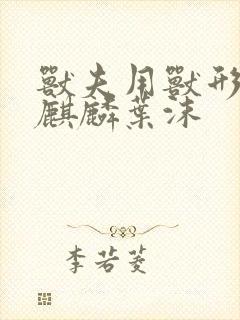 獸夫用獸形
麒麟葉沫
李若菱